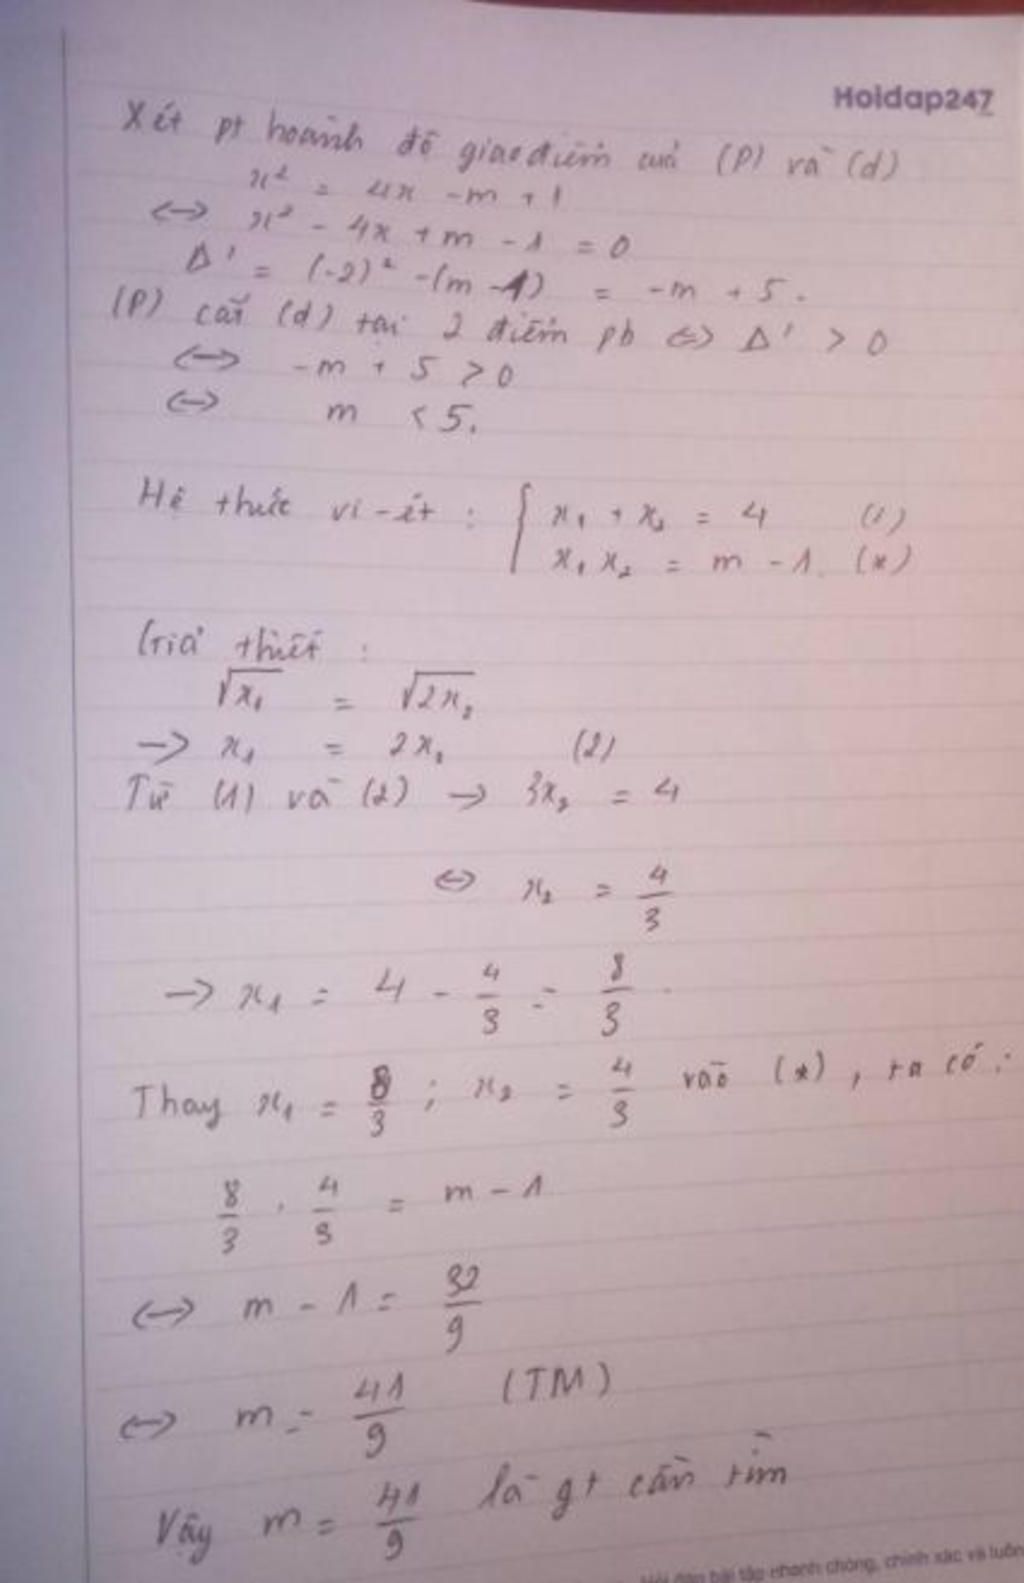 Hoidap247
Xét pt hoành độ giao điểm của (P) và (d)
x² = 4x - m + 1
<-> x² - 4x + m - 1 = 0
Δ' = (-2)² - (m - 1) = -m + 5.
(P) cắt (d) tại 2 điểm pb <=> Δ' > 0
<-> -m + 5 > 0
<-> m < 5.
Hệ thức vi-ét : { x₁ + x₂ = 4 (1)
x₁ x₂ = m - 1. (*)
Giả thiết :
√x₁ = √2x₂
-> x₁ = 2x₂ (2)
Từ (1) và (2) -> 3x₂ = 4
<=> x₂ = 4/3
-> x₁ = 4 - 4/3 = 8/3.
Thay x₁ = 8/3 ; x₂ = 4/3 vào (*), ta có :
8/3 . 4/3 = m - 1
<-> m - 1 = 32/9
<-> m = 41/9 (TM)
Vậy m = 41/9 là gt cần tìm
Hỏi đáp bài tập nhanh chóng, chính xác và luôn